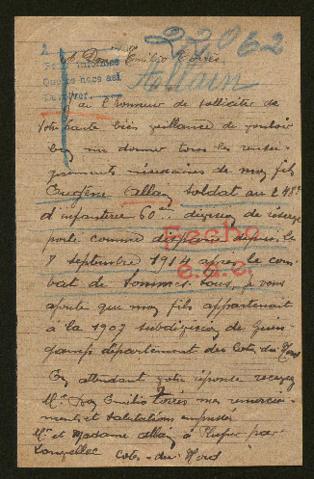 A Don Emilio Torres
22062
Allain
Para informes
Que se hace asi
J'ai l'honneur de solliciter de
votre haute bien veillance de vouloir
bien me donner tous les rensei-
gnements nécessaires de mon fils
Eugène Allain soldat au 248e
d'infanterie 60e division de réserve
porté comme disparu depuis le
8 septembre 1914 après le com-
bat de Sommesous, je vous
ajoute que mon fils appartenait
à la 1907 subdivision de Guin-
gamp département des Côtes-du-Nord
Fecho
En attendant votre réponse recevez
Mr Don Emilio Torres mes remercie-
ments et salutations
Mr et Madame Allain à par
Côtes-du-Nord